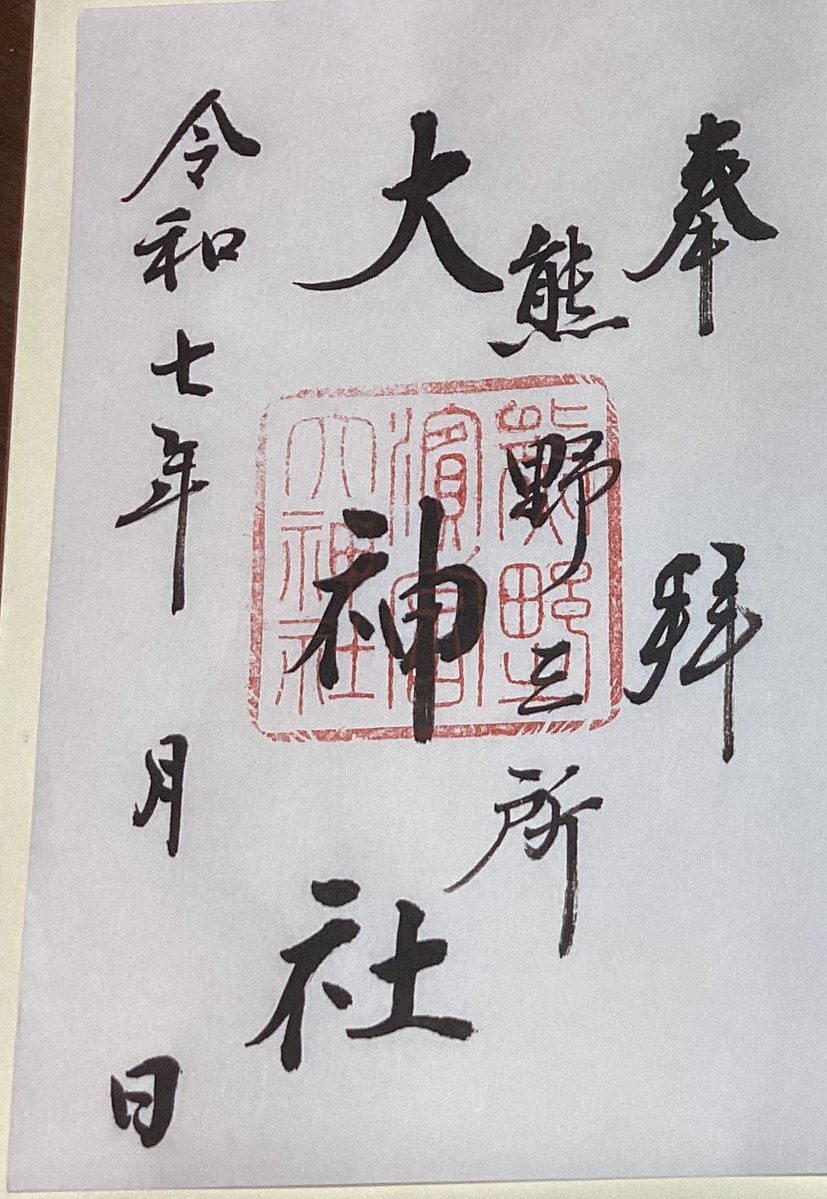 奉拝
熊野三所
大神社
熊野
濱宮
大神社
令和七年 月 日